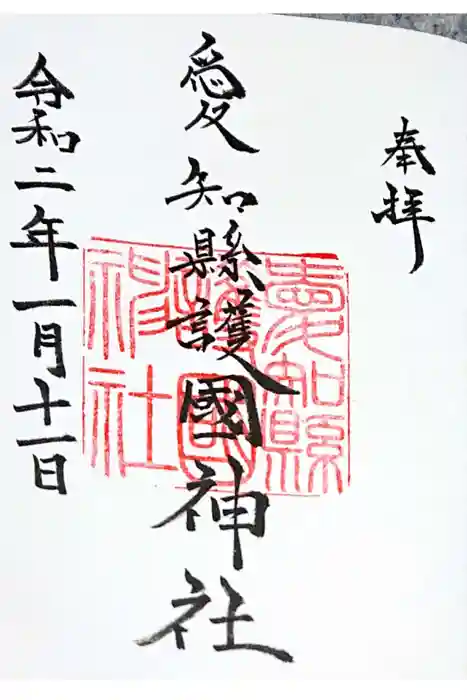 奉拝
愛知縣護國神社
愛知縣護國神社
令和二年一月十一日